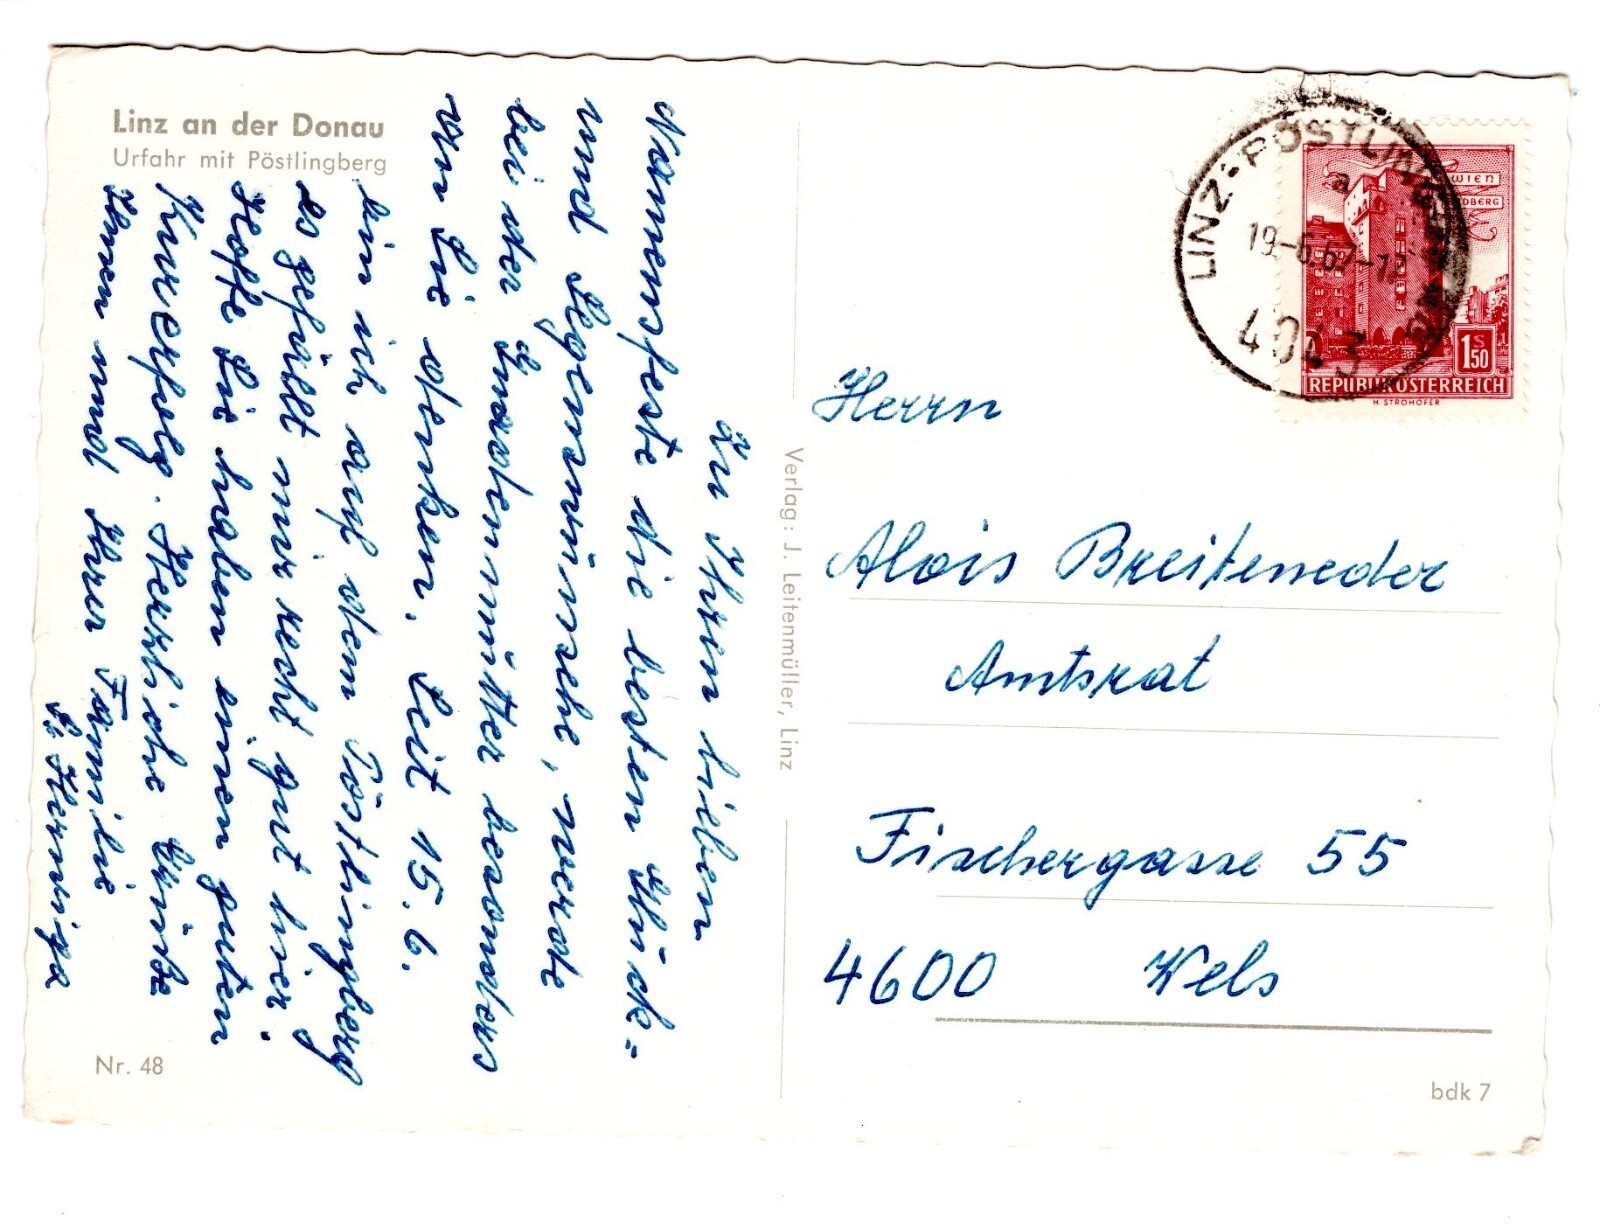 Linz an der Donau
Urfahr mit Pöstlingberg
Zu Ihrem lieben
Namensfeste die besten Glück=
und Segenswünsche, werde
bei der Gnadenmutter besonders
an Sie denken. Seit 15. 6.
bin ich auf dem Pöstlingberg
es gefällt mir recht gut hier.
Hoffe Sie haben einen guten
Kurerfolg. Herzliche Grüße
Ihnen und Ihrer Familie
Sr. Herwiga
Nr. 48
Verlag: J. Leitenmüller, Linz
LINZ-PÖSTLINGBERG
a
19-6.67-12
4043
WIEN
REPUBLIK ÖSTERREICH
1 S 50
H. STROHOFER
Herrn
Alois Breiteneder
Amtsrat
Fischergasse 55
4600 Wels
bdk 7